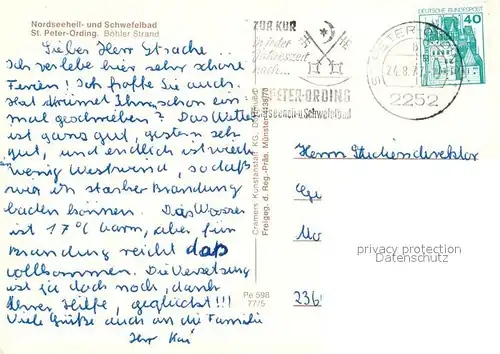 Nordseeheil- und Schwefelbad
St. Peter-Ording. Böhler Strand
Lieber Herr Etsache...
Ich verlebe hier sehr schöne
Ferien! Ich hoffe Sie auch.
Hat Ihnen schon ein
mal geschrieben? Das Wetter
ist ganz gut, gestern sehr
gut, und endlich ist wieder
wenig Westwind, sodaß
wir in starker Brandung
baden können. Das Wasser
ist 17°C warm, aber für
Brandung reicht das
vollkommen. Die Versetzung
ist ja doch noch, dank
Ihrer Hilfe, geglückt!!!
Viele Grüße auch an die Familie
Ihr Kai
Cramers Kunstanstalt KG, Dortmund
Freigeg. d. Reg.-Präs. Münster
Pe 598
77/5
ZUR KUR
in jeder
Jahreszeit
nach...
ST. PETER-ORDING
Nordseeheil- u. Schwefelbad
ST. PETER-
24.8.7
2252
DEUTSCHE BUNDESPOST
40
Herrn Studiendirektor
236
privacy protection
Datenschutz